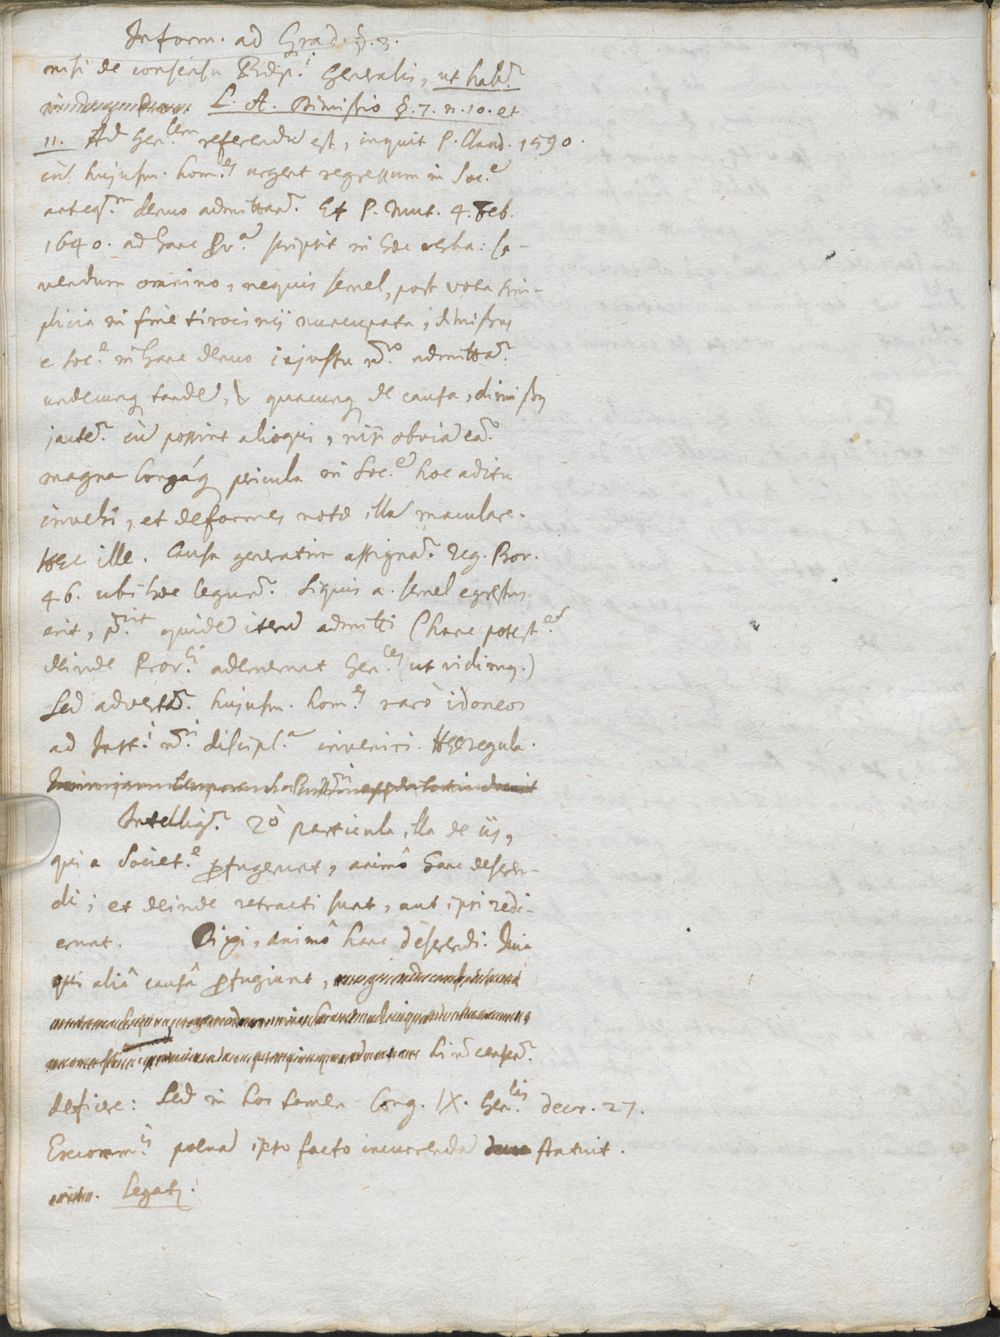 Inform. ad Grad. §. 3.
nisi de consensu Rdi P.i Generalis, ut habr.
L. A. Dimissio §. 7. n. 10. et
11. Ad Gen.lem referendũ est, inquit P. Claud. 1590.
cũ hujusm. hom.es urgent regressum in Soc.e
anteq.m denuo admittant. Et P. Mut. 4. Feb.
1640. ad hanc Prov.a scripsit in hæc verba: Ca-
vendum omnino, nequis semel, post vota sim-
plicia in fine tirocinii nuncupata, dimissus
e Soc.e in hanc denuo injussu nr.o admittar.
undecunq tandẽ, & quacunq de causa, dimissus
cũ possint alioqui, nisi obviã eat.
magna pericula in Soc.e hoc aditu
invehi, et deformes notæ illã maculare.
Hæc ille. Causa generatim assignar. Reg. Prov.
46. ubi hæc legunr. Siquis a. semel egressus
erit, p.rit quidẽ iterũ admitti (hanc potest.em
deinde Prov.li ademerunt Gen.les ut vidimus.)
Sed advertãt. hujusm. hom.es raro idoneos
ad Inst.i nr.i discipl.a inveniri. Hæc regula.
Intelligr. 2o particula illa de iis,
qui a Societ.e profugerunt, animô hanc deseren-
di; et deinde retracti sunt, aut ipsi redi-
erunt. Dixi, animô hanc deserendi. Quia
qui aliâ causâ profugiunt,
hi nõ censenr.
deficere: Sed in hos tamen Cong. IX. Gen.lis decr. 27.
Excomm.is poenã ipso facto incurrendã statuit.
Legati.